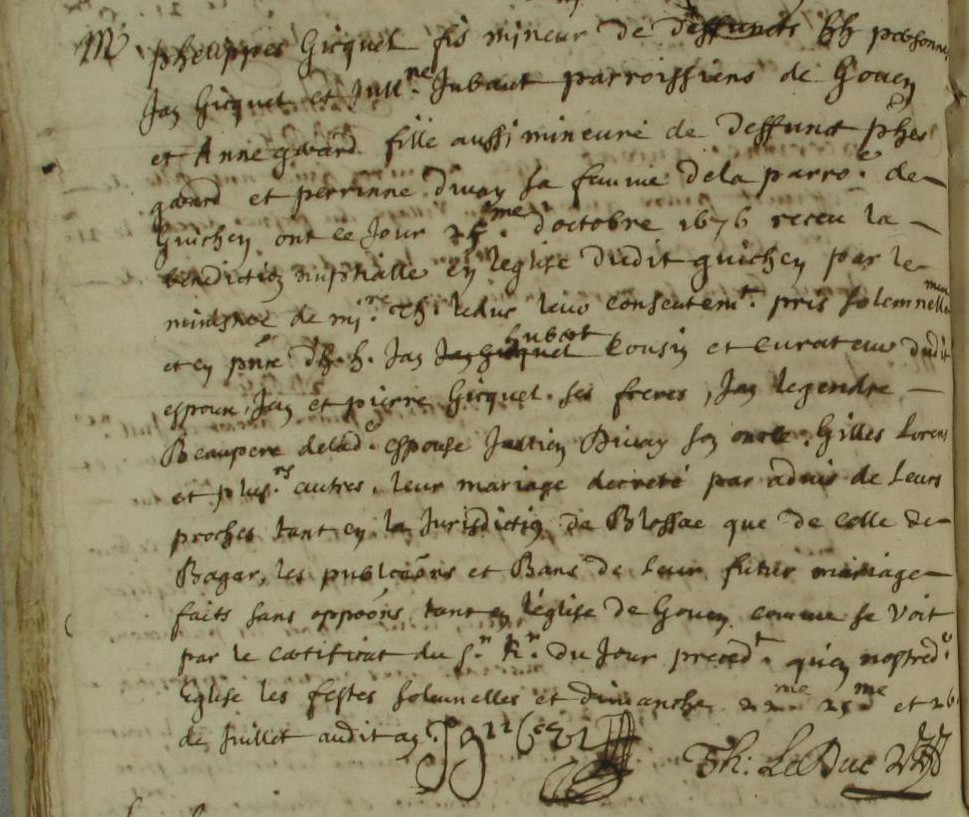 M pheuppes Gicquel fis mineur de deffuncts hh personne
Jan Gicquel et Jull.ne Jubaut parroissiens de Goven
et Anne gavard fille aussi mineure de deffunct phes
gavard et perrinne Divay sa femme de la parro.e de
Guichen ont ce Jour 25.me d'octobre 1676 receu la
benediction nuptialle en l'eglise dudit guichen par le
ministere de mi.re Th: leduc leur consentem.t pris solemnellemen
et en pnce d'h. h. Jan Jan Gicquel hubert Cousin et Curateur dudit
espoux, Jan et pierre Gicquel ses freres, Jan legendre
Beaupere de lad.e espouse Juetien Divay son oncle, Gilles Lorens
et plus.rs autres, leur mariage decreté par advis de leurs
proches tant en la Jurisdiction de Blossac que de celle de
Bagar, les publicaons et Bans de leur futur mariage
faits sans oppoons tant en l'église de Goven comme se Voit
par le certificat du s.r R.r du Jour preced.t qu'en nostred.e
Eglise les festes solemnelles et dimanche 22me 25me et 26
de Juillet audit an.
Th: LeDuc